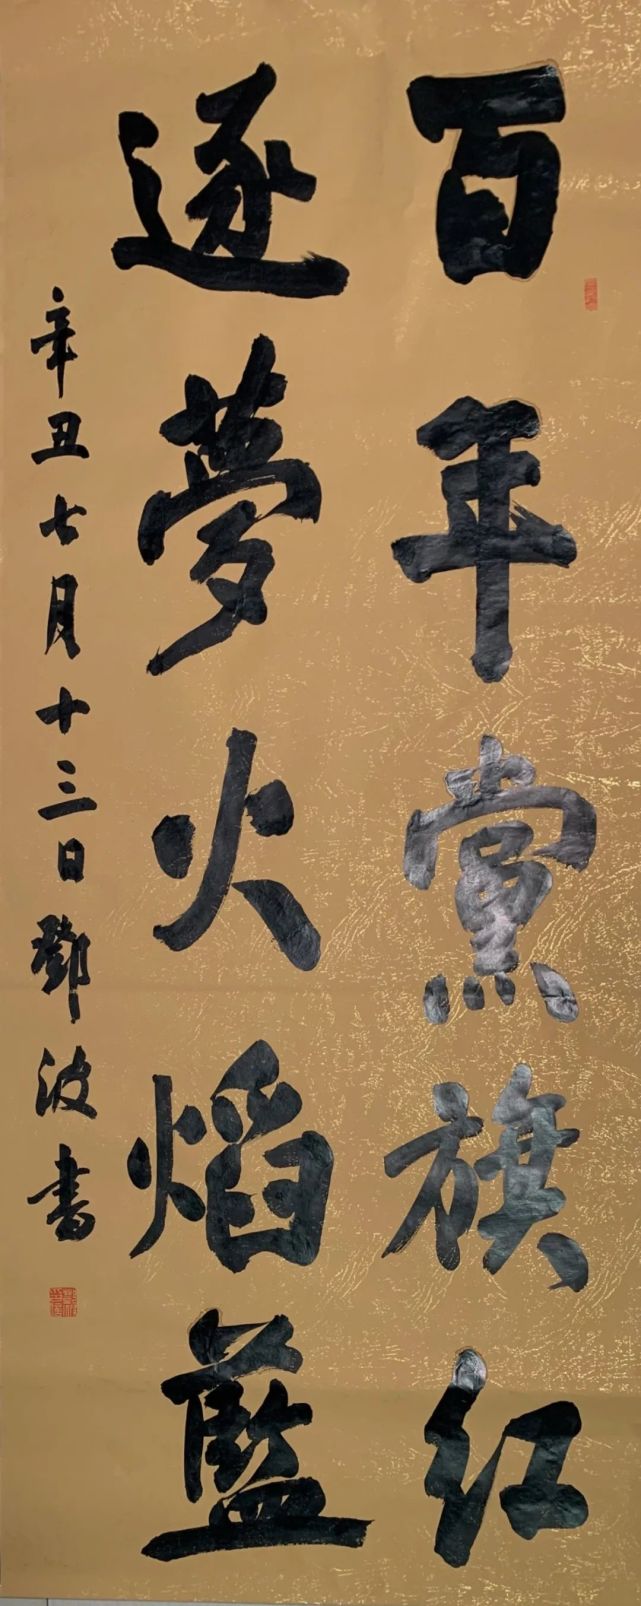 百年黨旗紅
逐夢火焰藍
辛丑七月十三日鄧波書